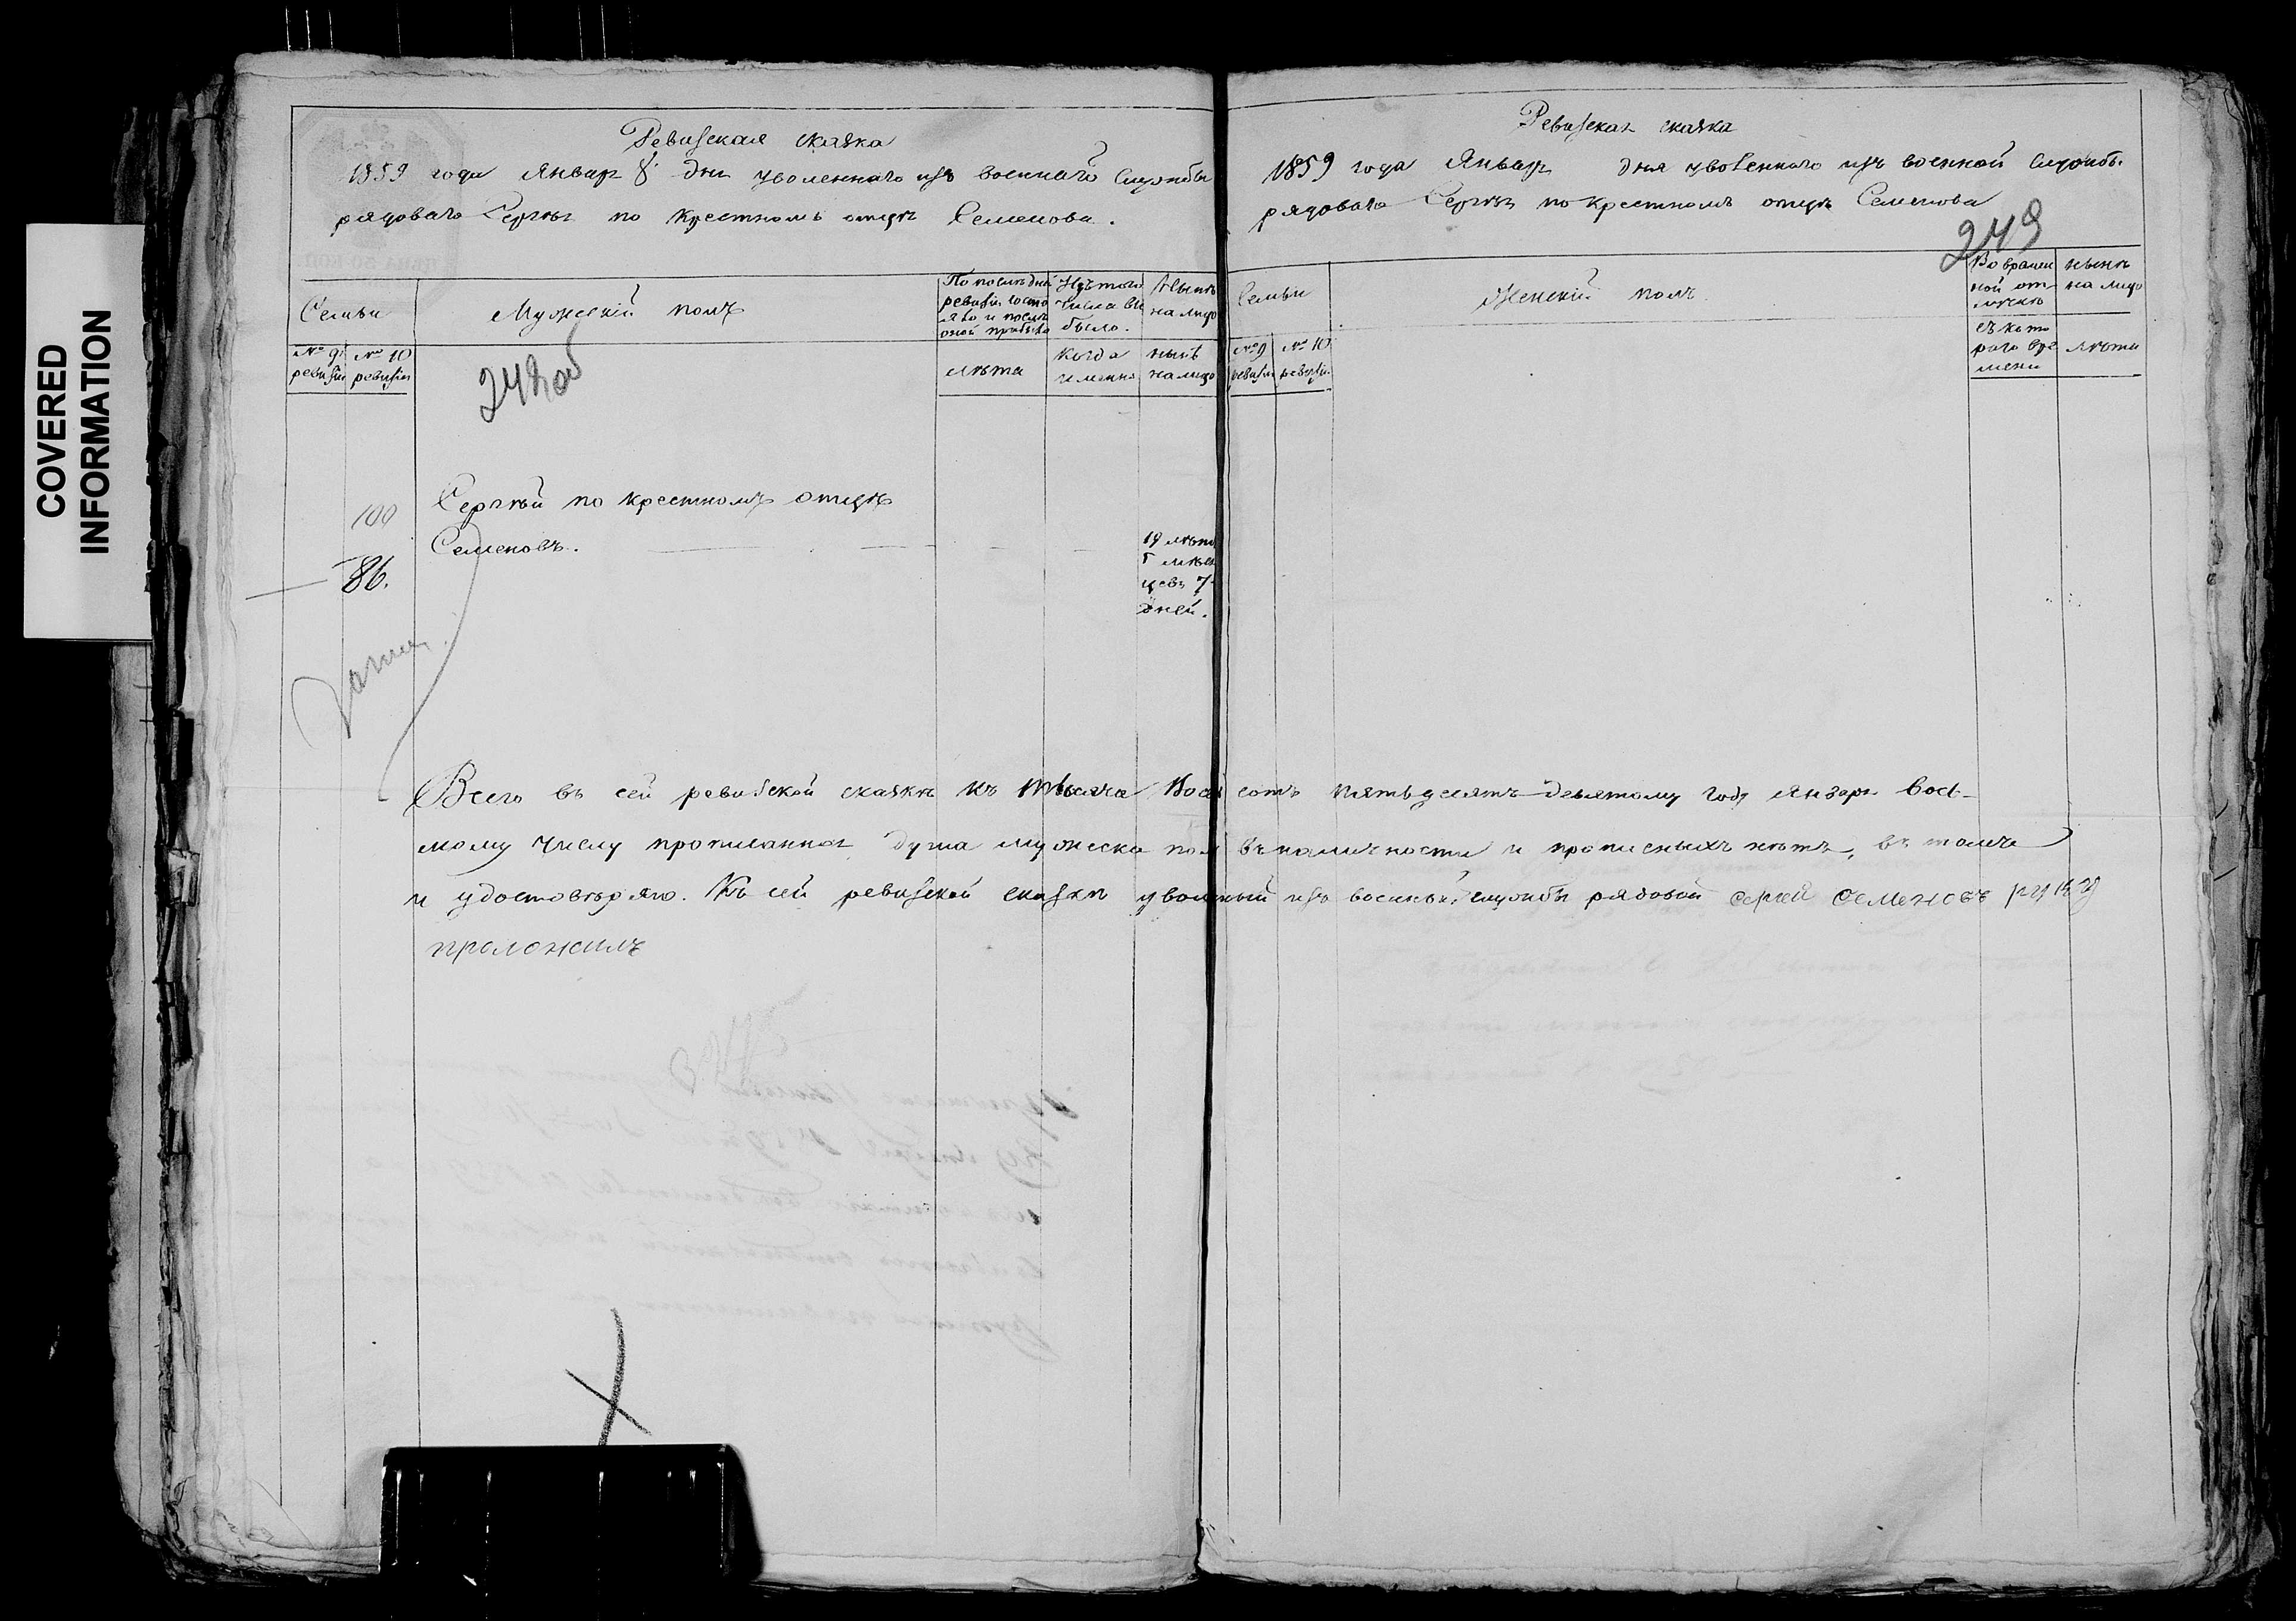 COVERED
INFORMATION
Ревизская сказка
1859 года Январ 8 дня уволеннаго изъ военнаго службы
рядоваго Сергѣя по крестномъ отцѣ Семенова.
Семьи
Мужескій полъ
По послѣдней
ревизіи состо
яло и послѣ
оной прибыло
Изъ того
числа вы
было.
Нынѣ
на лицо
№ 9
ревизіи
№ 10
ревизіи
лѣта
когда
именно
нынѣ
на лицо
248 об
100
Сергѣй по крестномъ отцѣ
Семеновъ.
86.
19 лѣтъ
5 мѣся
цевъ 7
дней.
Ревизская сказка
1859 года Январ дня уволеннаго изъ военной службы
рядоваго Сергѣя по крестномъ отцѣ Семенова
249
Семьи
Женскій полъ
Во времен
ной от
лучкѣ
нынѣ
на лицо
№ 9
ревизіи
№ 10
ревизіи
съ кото
раго вре
мени
лѣта
Всего въ сей ревизской сказкѣ къ тысяча восемь сотъ пятьдесятъ девятому году января вось-
мому числу прописанная душа мужеска пола въ наличности и прописныхъ нѣтъ, въ томъ
и удостовѣряю. Къ сей ревизской сказки уволеный изъ военный службы рядовой сергей семеновъ руку
проложилъ